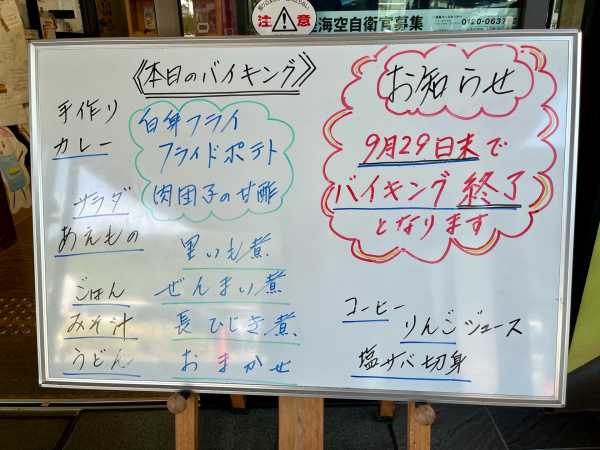 注意
海空自衛官募集
《本日のバイキング》
手作り
カレー
白身フライ
フライドポテト
肉団子の甘酢
サラダ
あえもの
里いも煮
ごはん
ぜんまい煮
みそ汁
長ひじき煮
うどん
おまかせ
お知らせ
9月29日末で
バイキング終了
となります
コーヒー
りんごジュース
塩サバ切身